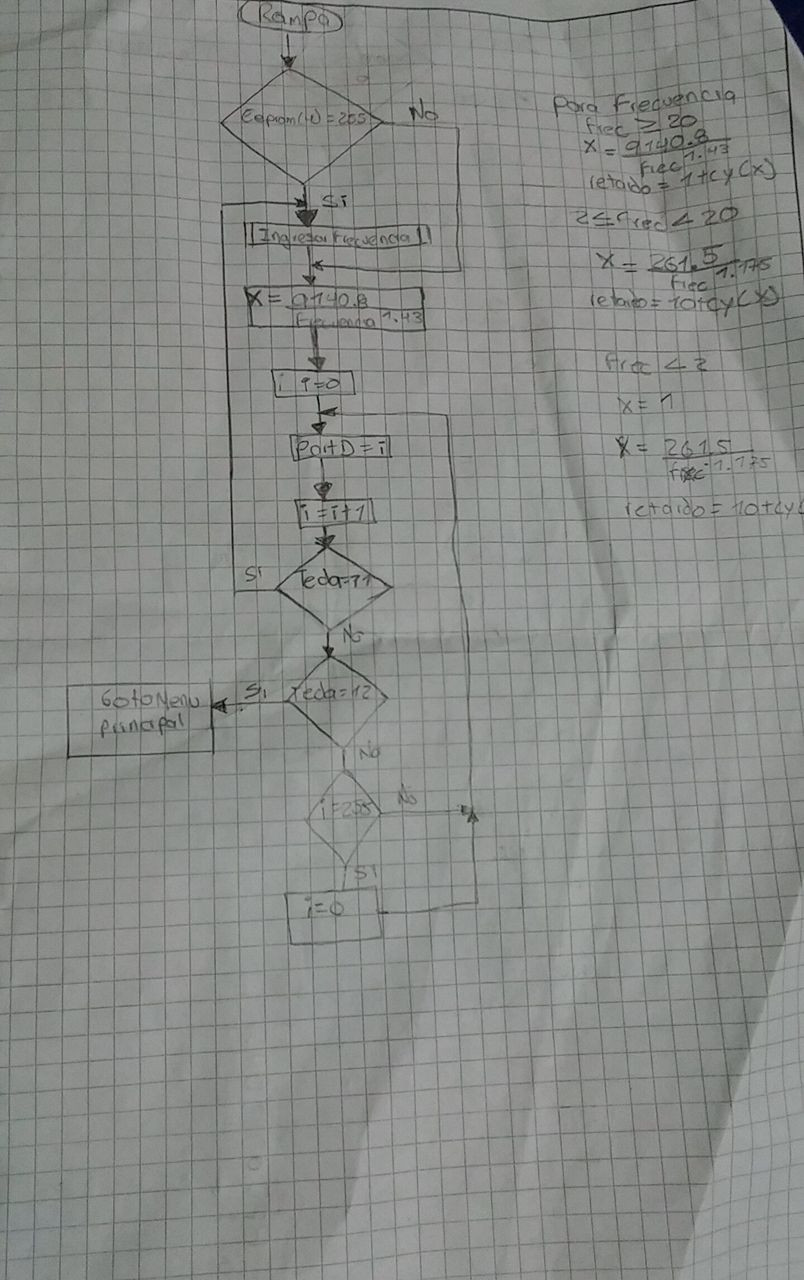 Rampa
Eeprom(4)=255
No
Si
Ingresar Frecuencia
X = 9140.8
Frecuencia 1.43
i=0
PortD = i
i=i+1
Si
Tecla=11
No
Tecla=12
Si
Goto Menu
principal
No
i=255
No
Si
i=0
Para Frecuencia
frec ≥ 20
X = 9140.8
Frec 1.43
retardo = 1+cy(X)
2≤Frec < 20
X = 261.5
frec 1.175
retardo = 10+cy(X)
frec < 2
X = 1
X = 261.5
frec 1.175
retardo = 10+cy(